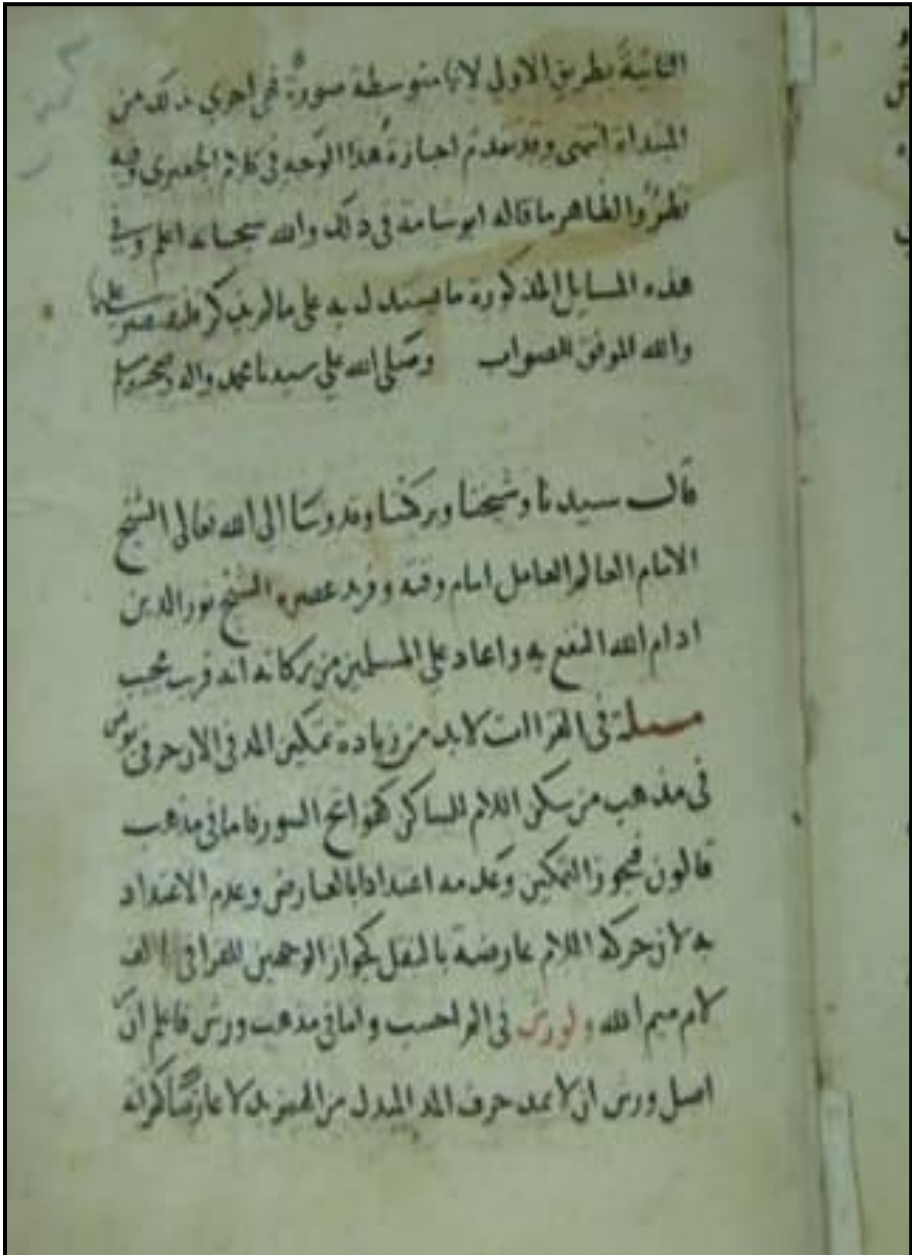 الثانية بطريق الاولي لانها متوسطة صورة فهي احري بذلك من
المبتداة انتهى وقد تقدم اجازة هذا الوجه في كلام الجعبري وفيه
نظر والظاهر ما قاله ابو شامة في ذلك والله سبحانه اعلم وفي
هذه المسايل المذكورة ما يستدل به على ما لم يذكر فلنقتصر عليها
والله الموفق للصواب وصلى الله علي سيدنا محمد واله وصحبه وسلم
قال سيدنا وشيخنا وبركتنا وقدوتنا الي الله تعالى الشيخ
الامام العالم العامل امام وقته وفريد عصره الشيخ نور الدين
ادام الله النفع به واعاد علي المسلمين من بركاته انه قريب مجيب
مسيلة في القراات لابد من زيادة تمكين المد في الان حرفي يونس
في مذهب من سكن اللام للساكن كفواتح السور فاما في مذهب
قالون فيجوز التمكين وعدمه اعتدادا بالعارض وعدم الاعتداد
به لان حركة اللام عارضة بالنقل كجواز الوجهين للقرا في الف
لام ميم الله ولورش في الم احسب واما في مذهب ورش فاعلم ان
اصل ورش ان لا يمد حرف المد المبدل من الهمز بدلا عارضا